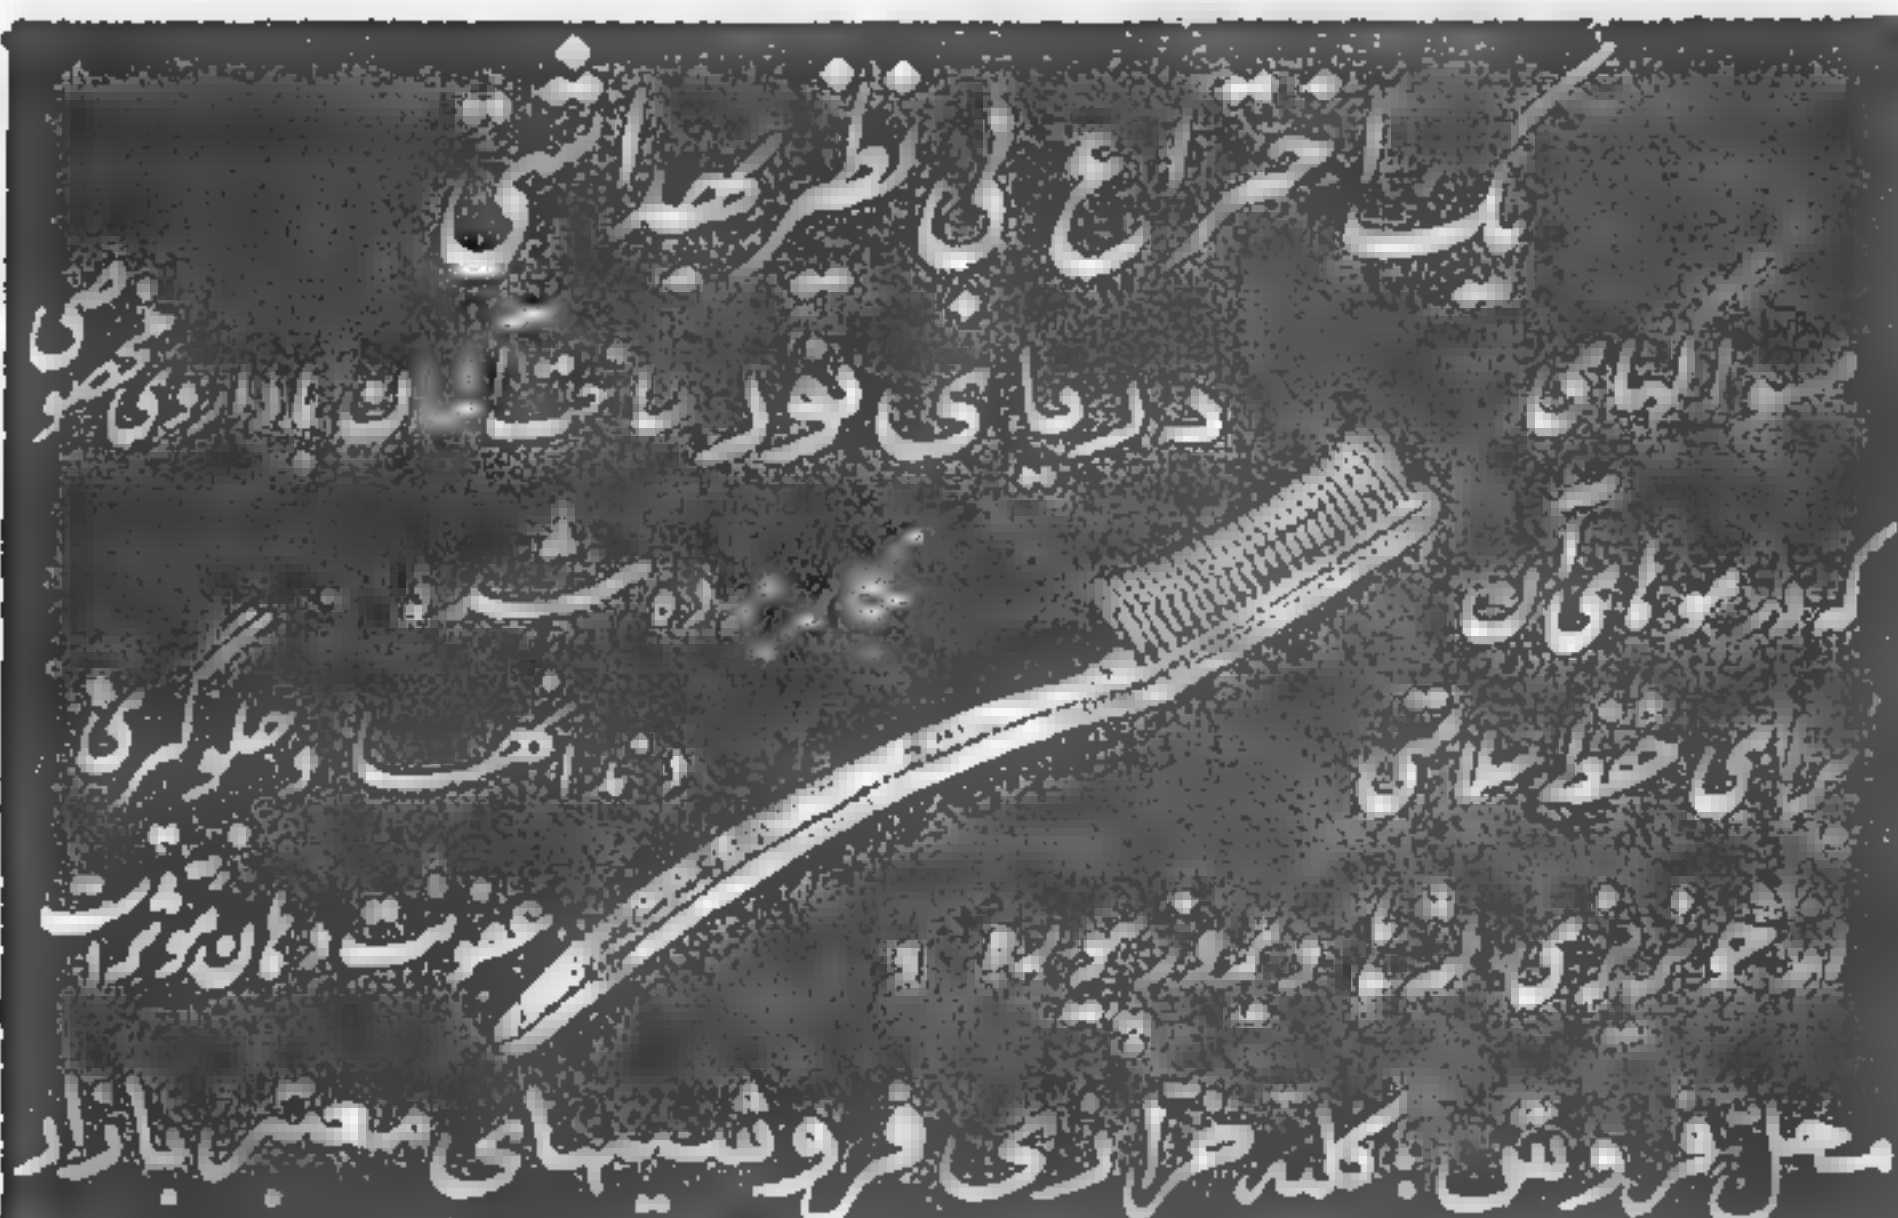 یک اختراع بی نظیر بهداشتی
مسواکهای دریای نور ساخت آلمان با داروی مخصوصی
که در موهای آن شده
برای حفظ سلامتی دندانها و جلوگیری
از خونریزی لثه و عفونت دهان موثر است
محل فروش: کلیه خرازی فروشیهای معتبر بازار